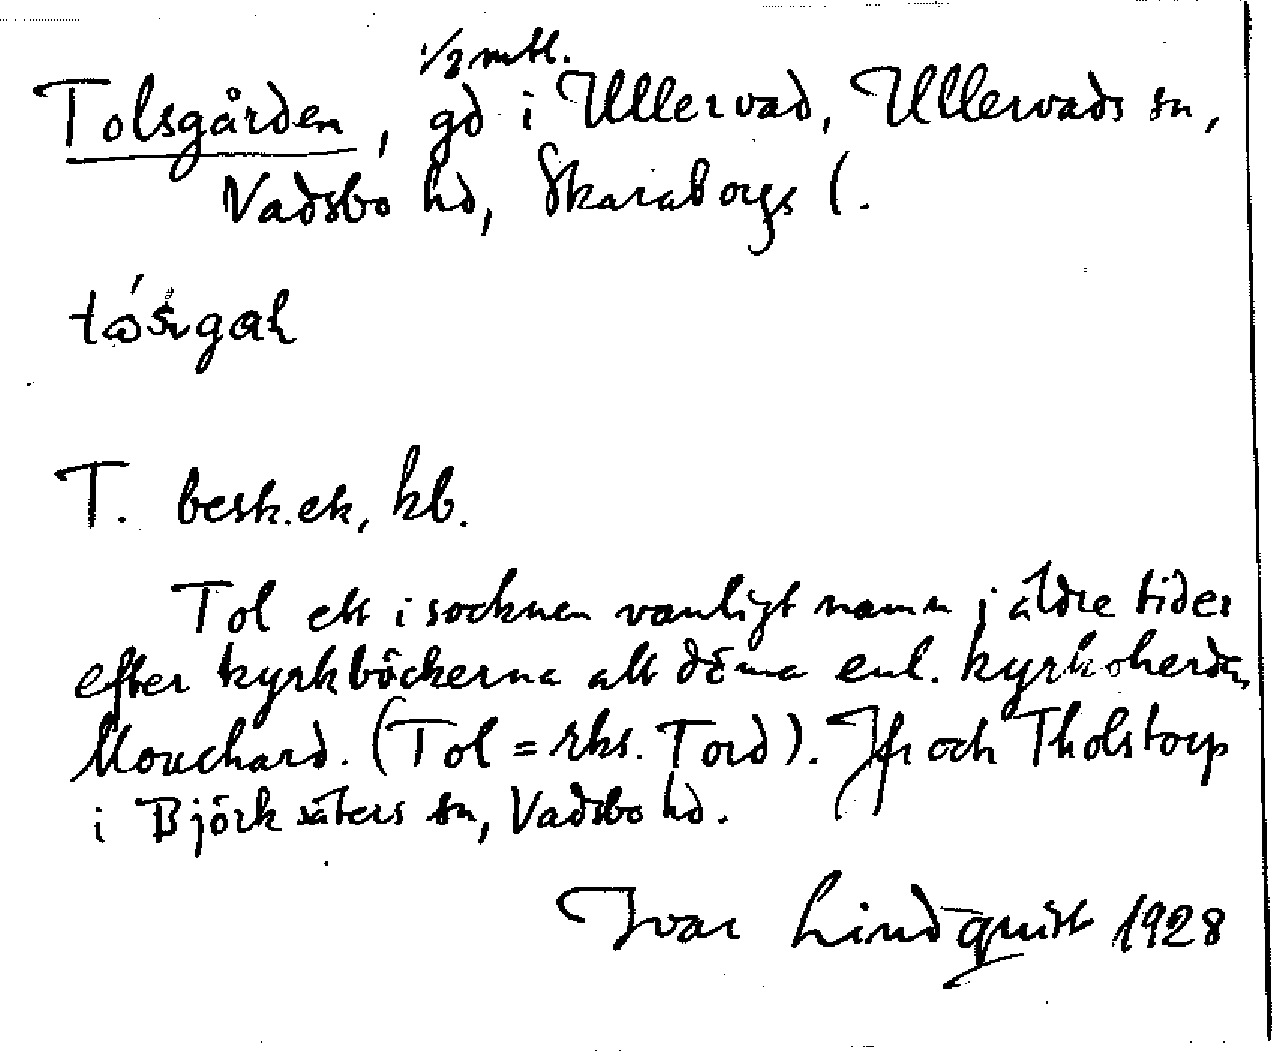 1/2 mtl.
Tolsgården, gd i Ullervad, Ullervads sn,
Vadsbo hd, Skaraborgs l.
T. besk. ek, kb.
Tol ett i socknen vanligt namn i äldre tider
efter kyrkböckerna att döma enl. kyrkoherden
Mouchard. (Tol = rks. Tord). Jfr och Tholstorp
i Björksäters sn, Vadsbo hd.
Ivar Lindquist 1928